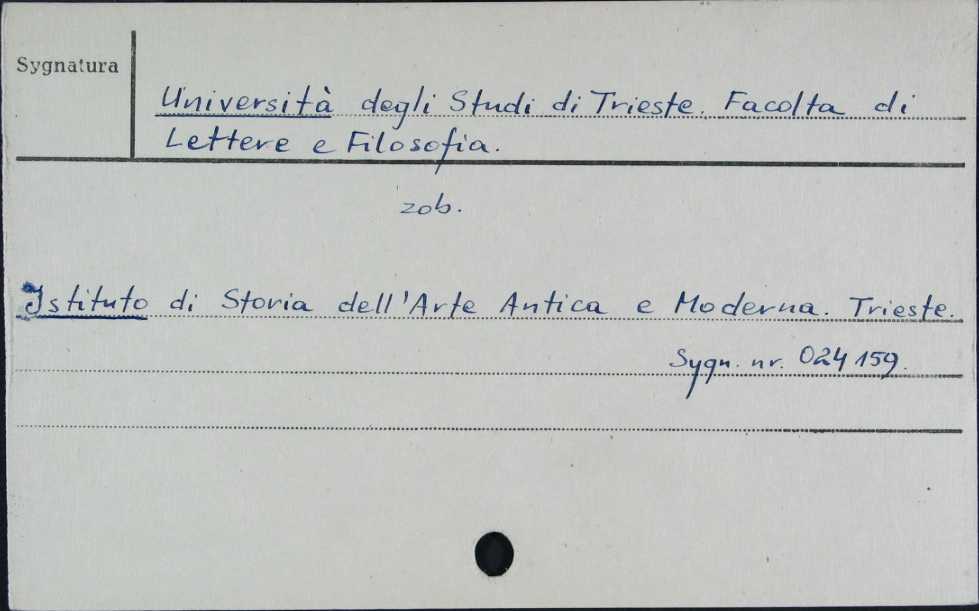 Sygnatura
Università degli Studi di Trieste. Facolta di
Lettere e Filosofia.
zob.
Istituto di Storia dell'Arte Antica e Moderna. Trieste.
Sygn. nr. 024159.